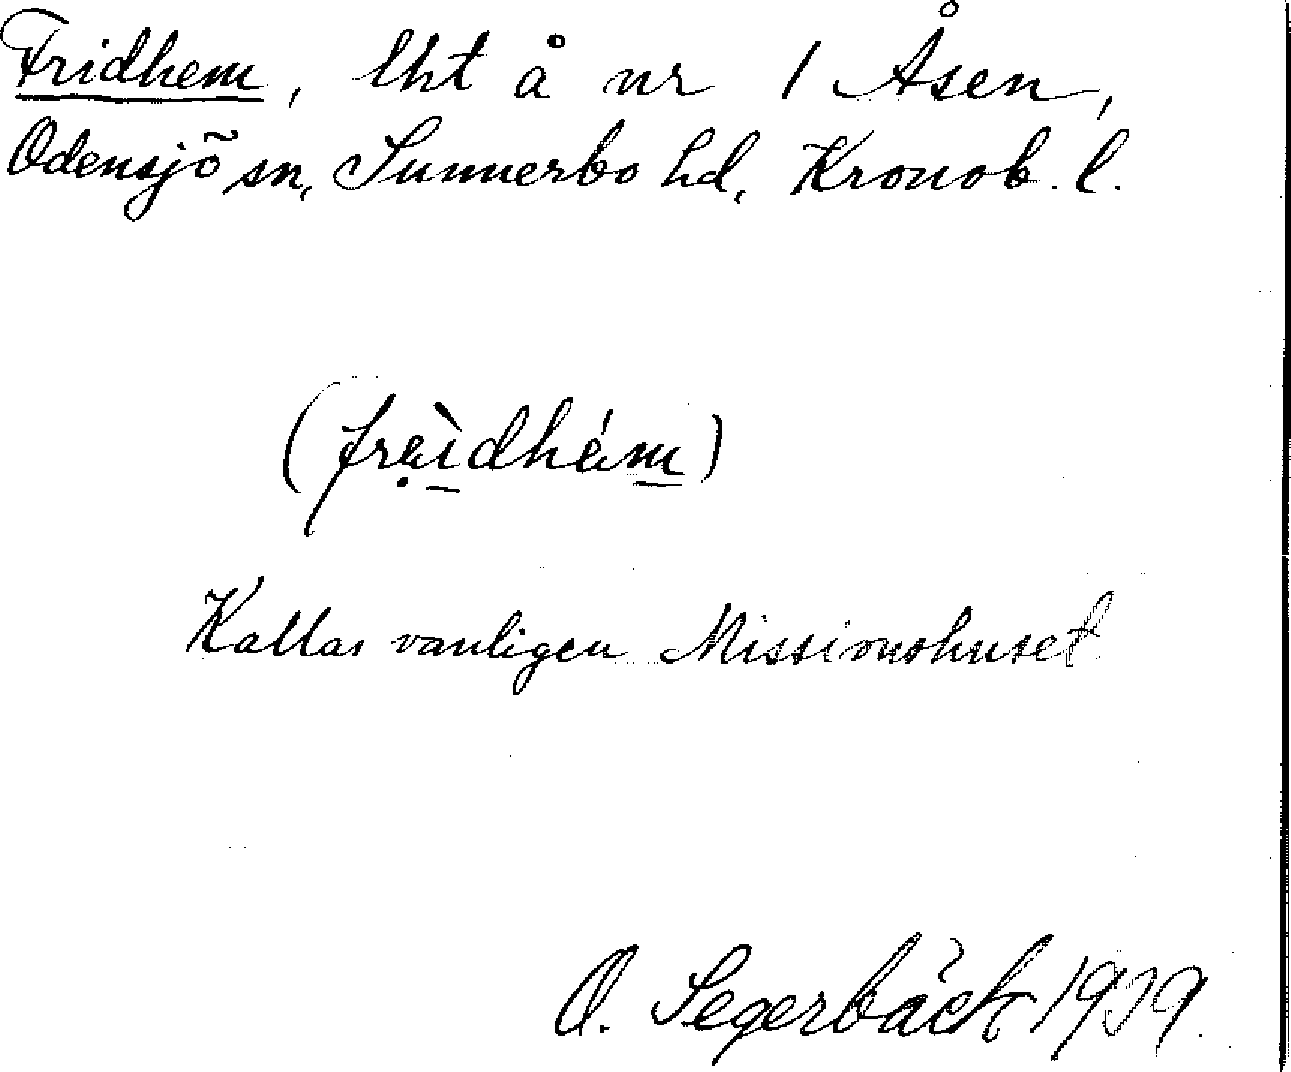 Fridhem, lht å nr 1 Åsen,
Odensjö sn, Sunnerbo hd, Kronob. l.
(frẹìdhém)
Kallas vanligen Missionshuset
O. Segerbäck 1939.